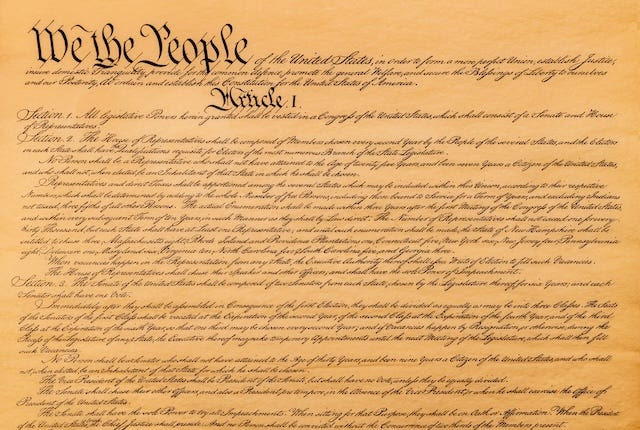 We the People of the United States, in order to form a more perfect Union, establish Justice,
insure domestic Tranquility, provide for the common defence, promote the general Welfare, and secure the Blessings of Liberty to ourselves
and our Posterity, do ordain and establish this Constitution for the United States of America.
Article I.
Section 1. All legislative Powers herein granted shall be vested in a Congress of the United States, which shall consist of a Senate and House
of Representatives.
Section 2. The House of Representatives shall be composed of Members chosen every second Year by the People of the several States, and the Electors
in each State shall have Qualifications requisite for Electors of the most numerous Branch of the State Legislature.
No Person shall be a Representative who shall not have attained to the Age of twenty five Years, and been seven Years a Citizen of the United States,
and who shall not, when elected, be an Inhabitant of that State in which he shall be chosen.
Representatives and direct Taxes shall be apportioned among the several States which may be included within this Union, according to their respective
Numbers, which shall be determined by adding to the whole Number of free Persons, including those bound to Service for a Term of Years, and excluding Indians
not taxed, three fifths of all other Persons. The actual Enumeration shall be made within three Years after the first Meeting of the Congress of the United States,
and within every subsequent Term of ten Years, in such Manner as they shall by Law direct. The Number of Representatives shall not exceed one for every
thirty Thousand, but each State shall have at Least one Representative; and until such enumeration shall be made, the State of New Hampshire shall be
entitled to chuse three, Massachusetts eight, Rhode Island and Providence Plantations one, Connecticut five, New York six, New Jersey four, Pennsylvania
eight, Delaware one, Maryland six, Virginia ten, North Carolina five, South Carolina five, and Georgia three.
When vacancies happen in the Representation from any State, the Executive Authority thereof shall issue Writs of Election to fill such Vacancies.
The House of Representatives shall chuse their Speaker and other Officers; and shall have the sole Power of Impeachment.
Section 3. The Senate of the United States shall be composed of two Senators from each State, chosen by the Legislature thereof, for six Years; and each
Senator shall have one Vote.
Immediately after they shall be assembled in Consequence of the first Election, they shall be divided as equally as may be into three Classes. The Seats
of the Senators of the first Class shall be vacated at the Expiration of the second Year, of the second Class at the Expiration of the fourth Year, and of the third
Class at the Expiration of the sixth Year, so that one third may be chosen every second Year; and if Vacancies happen by Resignation, or otherwise, during the
Recess of the Legislature of any State, the Executive thereof may make temporary Appointments until the next Meeting of the Legislature, which shall then fill
such Vacancies.
No Person shall be a Senator who shall not have attained to the Age of thirty Years, and been nine Years a Citizen of the United States, and who shall
not, when elected, be an Inhabitant of that State for which he shall be chosen.
The Vice President of the United States shall be President of the Senate, but shall have no Vote, unless they be equally divided.
The Senate shall chuse their other Officers, and also a President pro tempore, in the Absence of the Vice President, or when he shall exercise the Office of
President of the United States.
The Senate shall have the sole Power to try all Impeachments. When sitting for that Purpose, they shall be on Oath or Affirmation. When the President
of the United States, the Chief Justice shall preside: And no Person shall be convicted without the Concurrence of two thirds of the Members present.